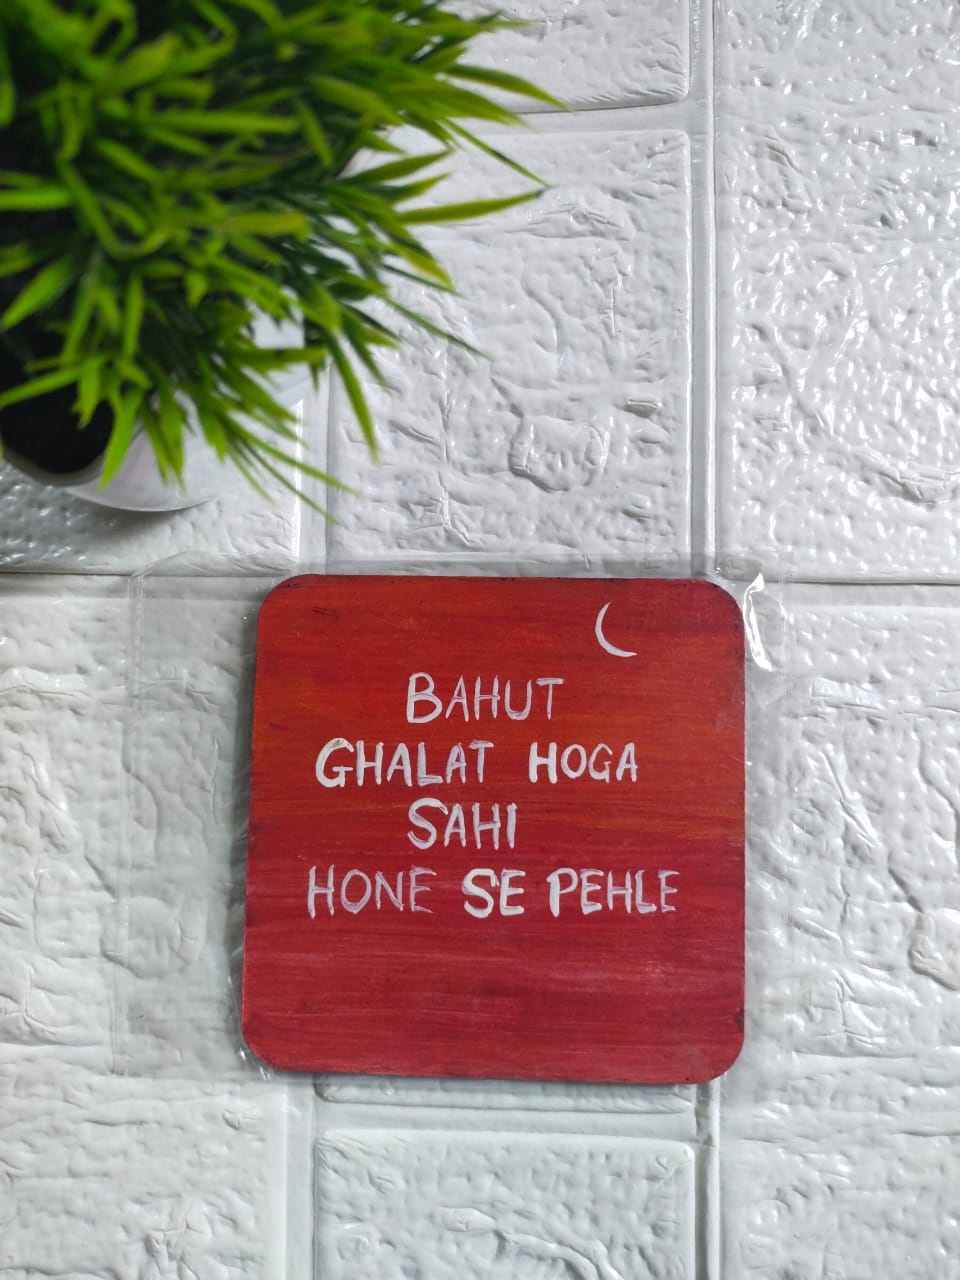 BAHUT
GHALAT HOGA
SAHI
HONE SE PEHLE